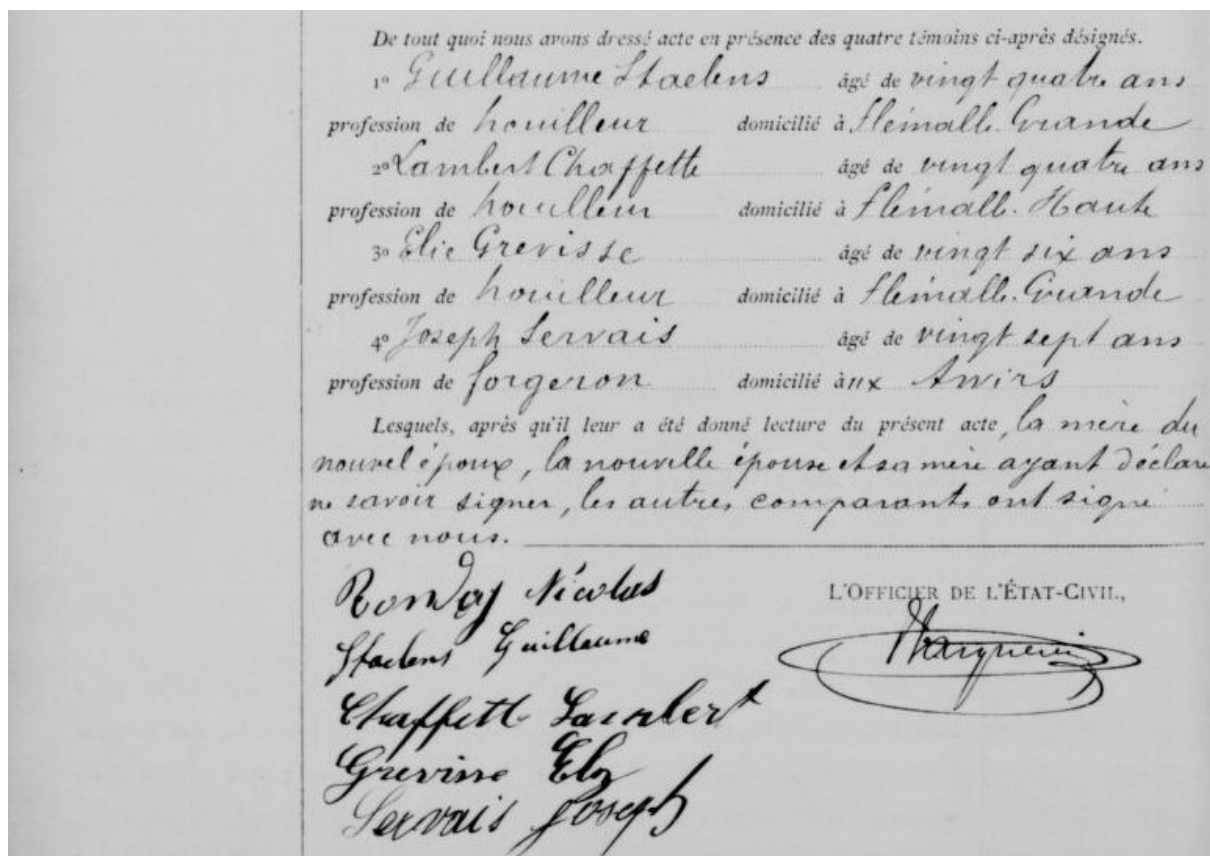 De tout quoi nous avons dressé acte en présence des quatre témoins ci-après désignés.
1º Guillaume Staelens âgé de vingt quatre ans
profession de houilleur domicilié à Flémalle Grande
2º Lambert Chaffette âgé de vingt quatre ans
profession de houilleur domicilié à Flémalle Haute
3º Elie Grevisse âgé de vingt six ans
profession de houilleur domicilié à Flémalle Grande
4º Joseph Servais âgé de vingt sept ans
profession de forgeron domicilié aux Awirs
Lesquels, après qu'il leur a été donné lecture du présent acte, la mère du
nouvel époux, la nouvelle épouse et sa mère ayant déclaré
ne savoir signer, les autres comparants ont signé
avec nous.
Nicolas
L'OFFICIER DE L'ÉTAT-CIVIL,
Staelens Guillaume
Chaffette Lambert
Grevisse
Servais Joseph